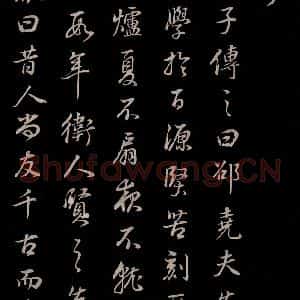 子傳之曰邵堯夫
學於百源堅苦刻
爐夏不扇夜不就
年衛人賢之
曰昔人尚友千古而
Shufawang.CN